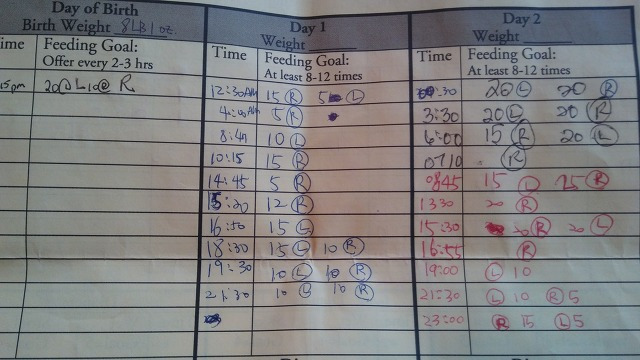 Day of Birth
Birth Weight 8LB 1 oz.
Day 1
Weight
Day 2
Weight
Time
Feeding Goal:
Offer every 2-3 hrs
Time
Feeding Goal:
At least 8-12 times
Time
Feeding Goal:
At least 8-12 times
15pm 20@ L 10@ R
12:30AM 15 R 5 L
:30 20 L 20 R
4:00AM 5 R
3:30 20 L 20 R
8:40 10 L
6:00 15 R 20 L
10:15 15 R
0710 R
14:45 5 R
0845 15 L 25 R
15:20 12 R
1330 20 R
16:50 15 L
15:30 20 R 20 L
18:30 15 L 10 R
16:55 R
19:30 10 L 10 R
19:00 L 10
21:30 10 L 10 R
21:30 L 10 R 5
23:00 R 15 L 5